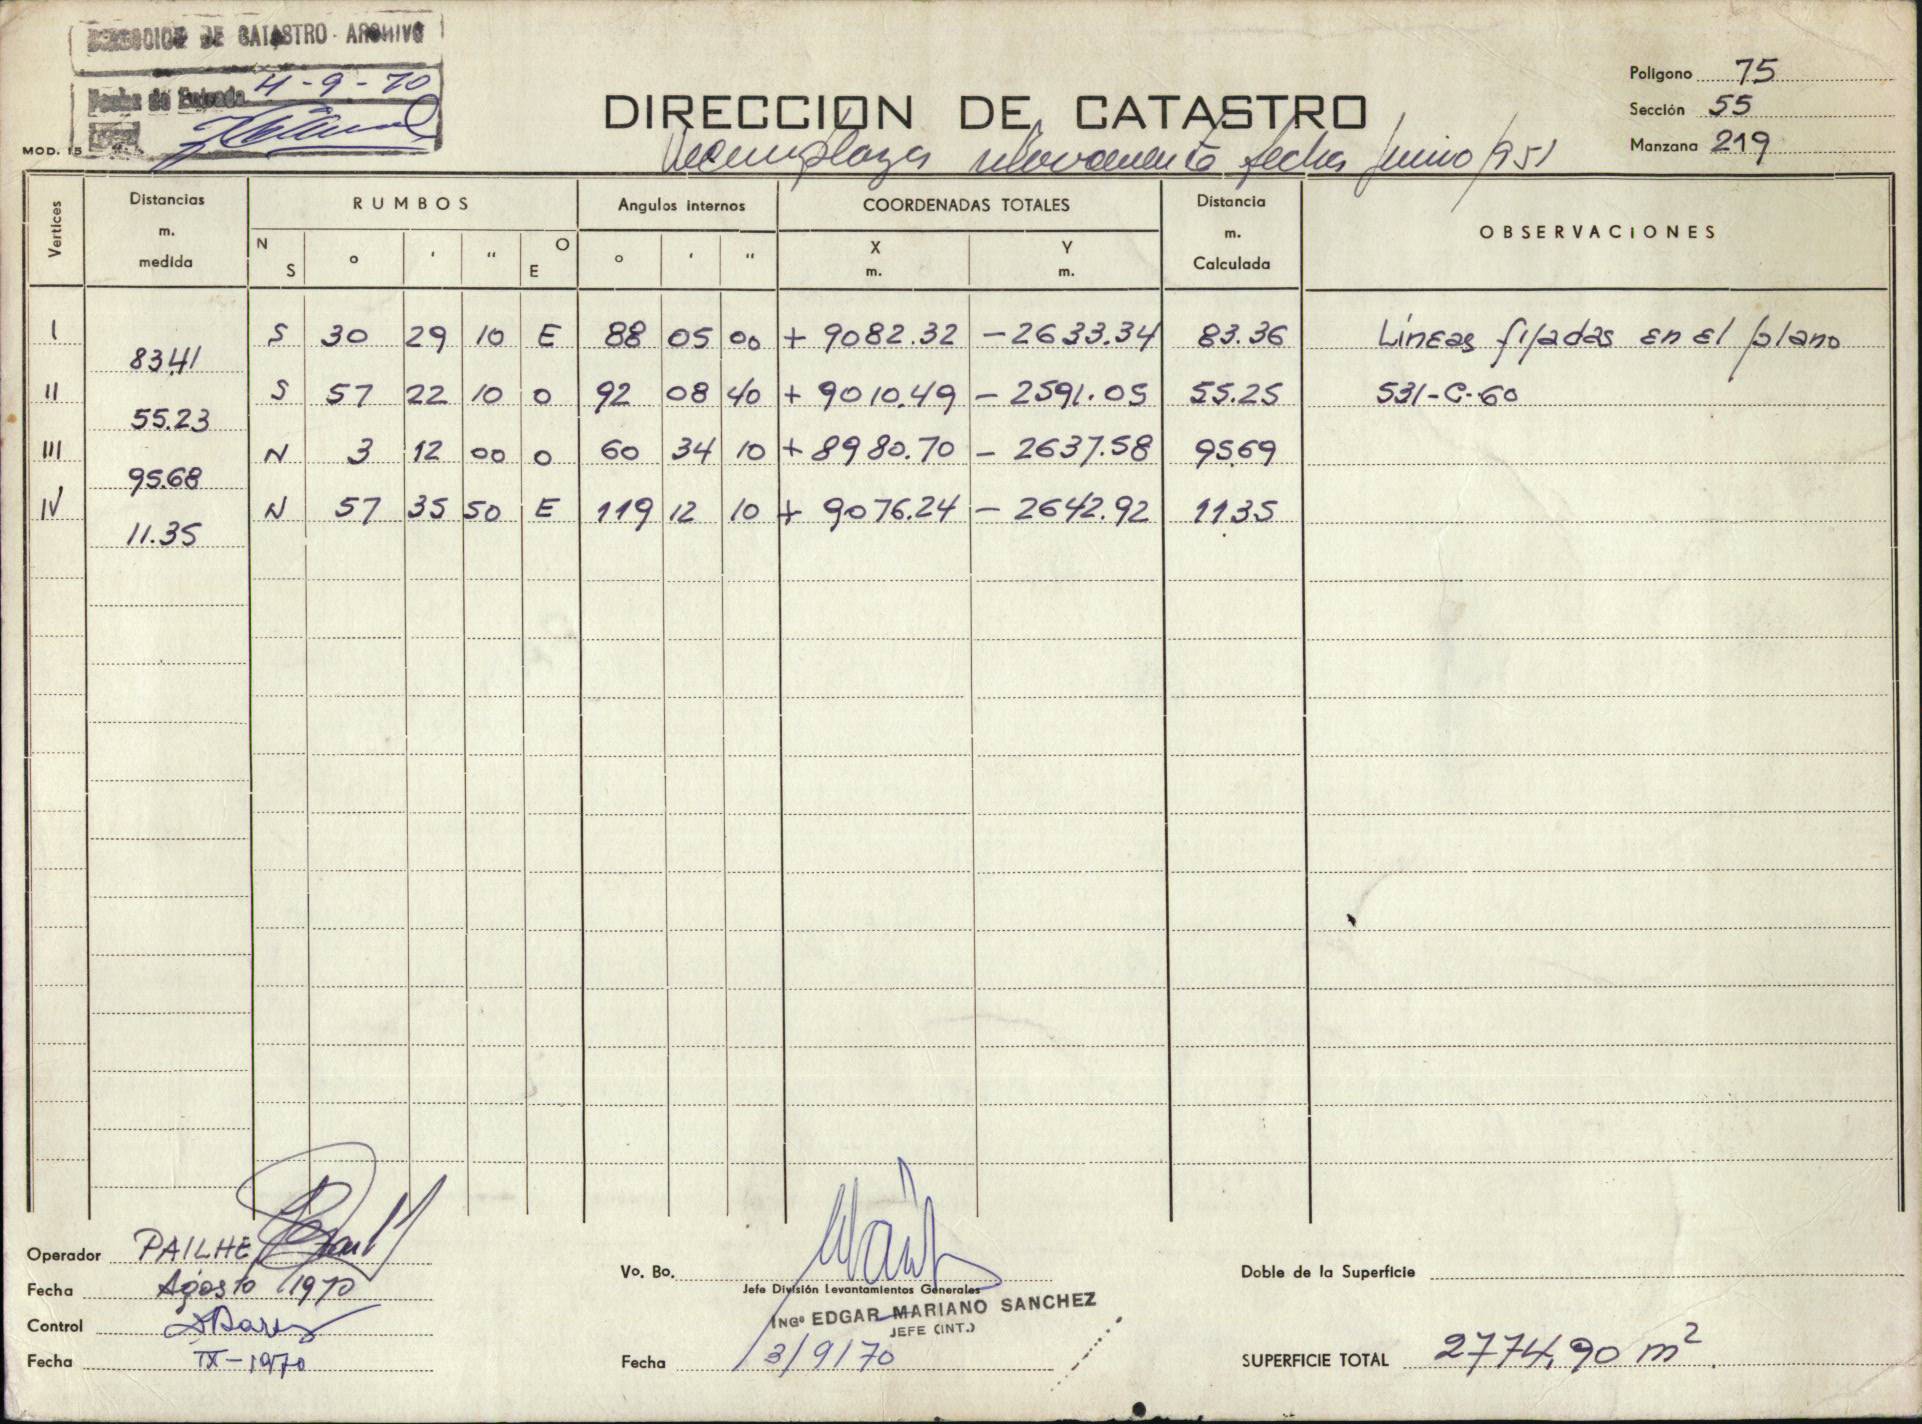 DIRECCION DE CATASTRO - ARCHIVO
Fecha de Entrada 4-9-70
MOD. 15
DIRECCION DE CATASTRO
Reemplaza relevamiento fecha Junio/951
Poligono 75
Sección 55
Manzana 219
Vertices Distancias m. medida RUMBOS Angulos internos COORDENADAS TOTALES Distancia m. Calculada OBSERVACIONES
N S ° ' " O E ° ' " X m. Y m.
I S 30 29 10 E 88 05 00 + 9082.32 - 2633.34 83.36 Líneas fijadas en el plano
83.41
II S 57 22 10 O 92 08 40 + 9010.49 - 2591.05 55.25 531-C-60
55.23
III N 3 12 00 O 60 34 10 + 8980.70 - 2637.58 95.69
95.68
IV N 57 35 50 E 119 12 10 + 9076.24 - 2642.92 11.35
11.35
Operador PAILHE
Fecha Agosto 1970
Control
Fecha IX-1970
Vo. Bo.
Jefe División Levantamientos Generales
INGº EDGAR MARIANO SANCHEZ
JEFE (INT.)
Fecha 3/9/70
Doble de la Superficie
SUPERFICIE TOTAL 2774.90 m²